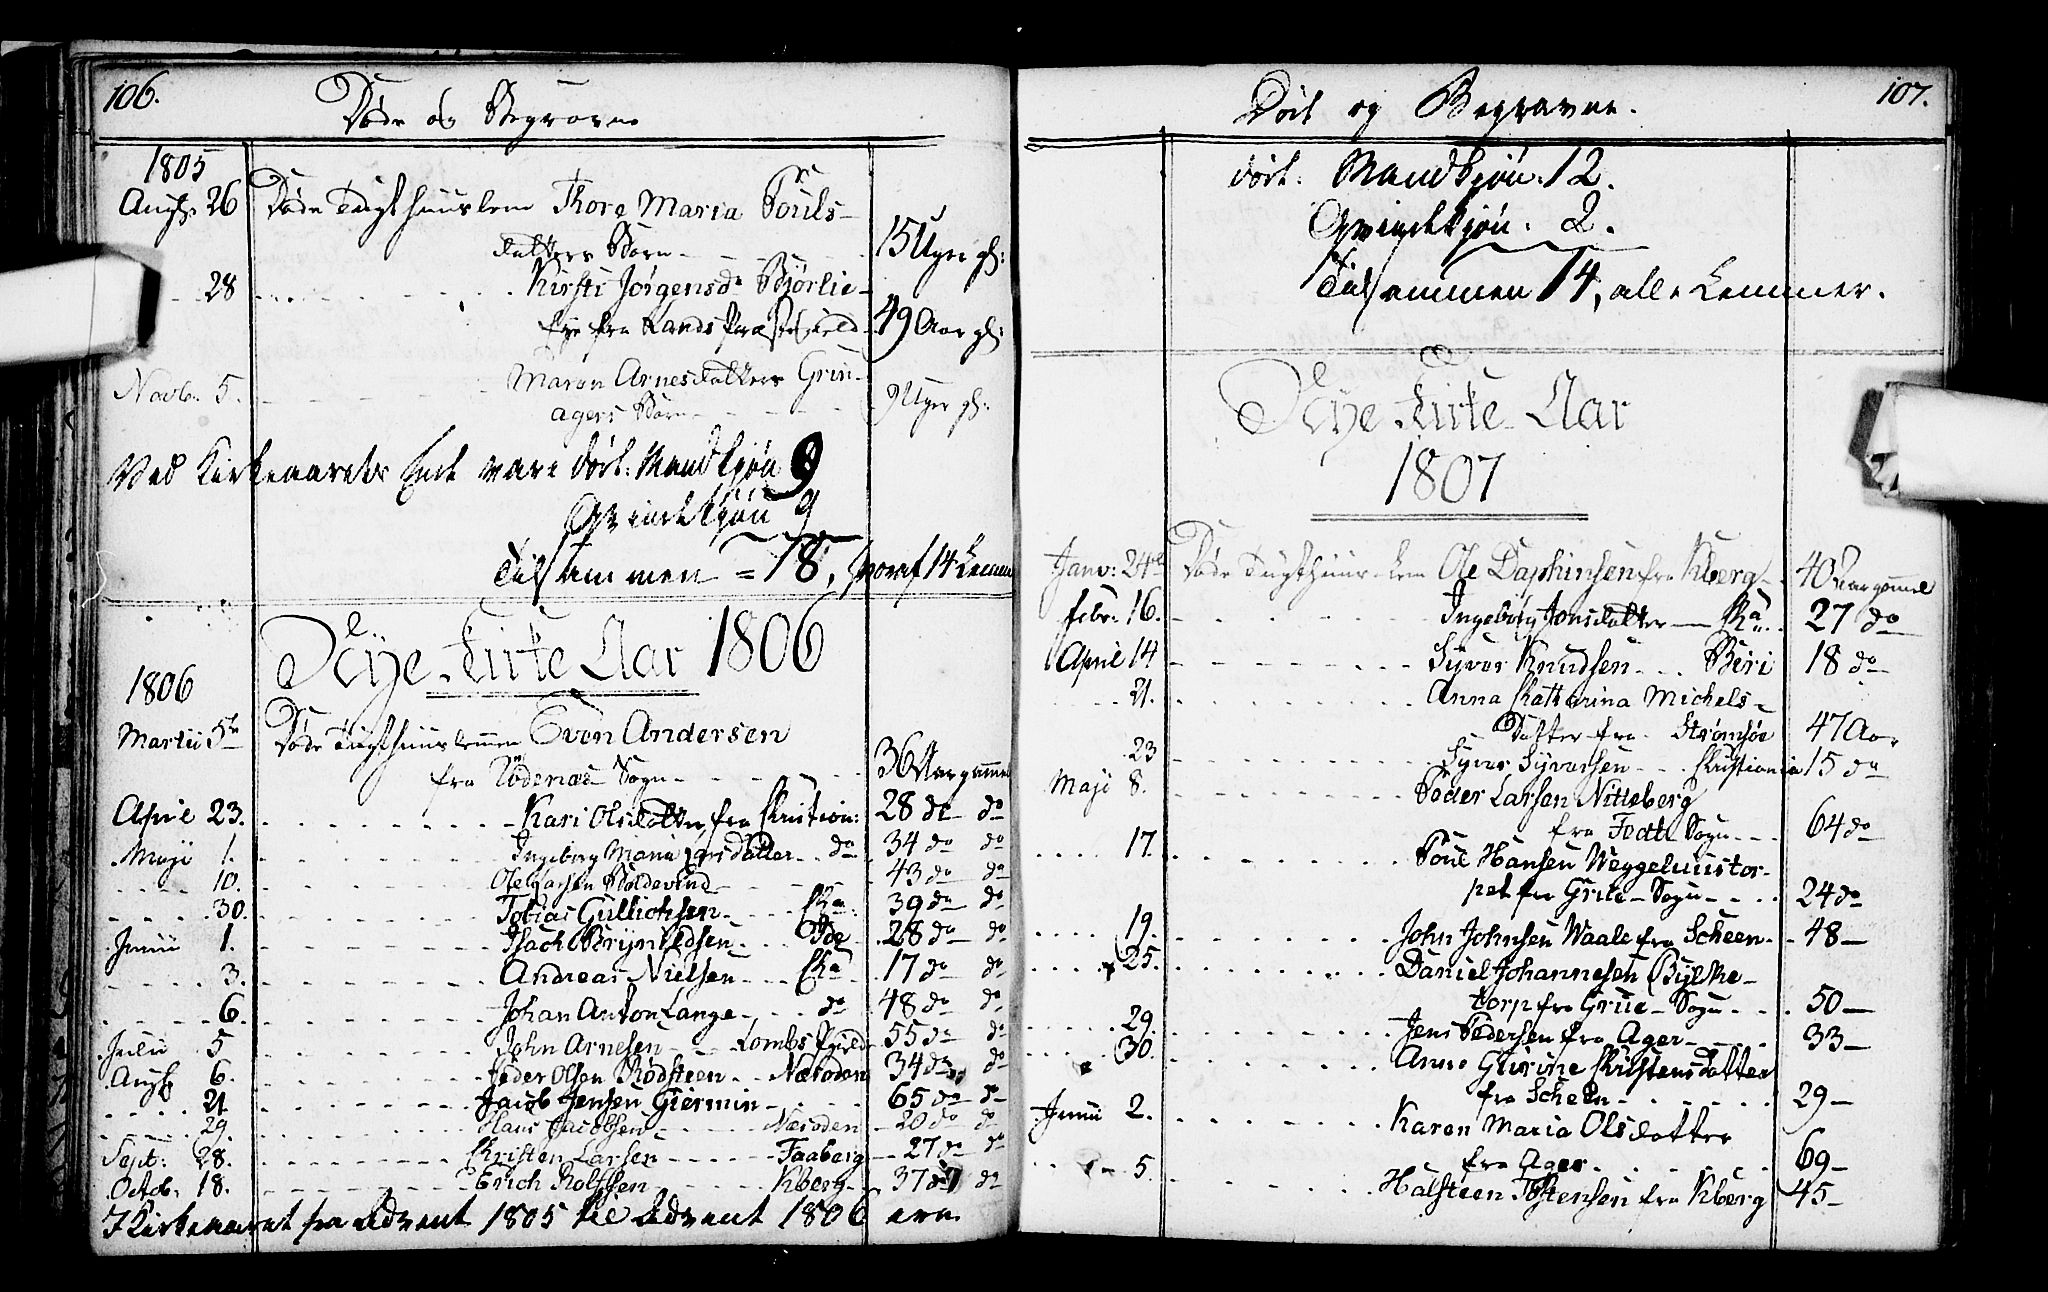 106.
Døde og Begravne
1805
Augs: 26 Døde Tugthuuslem Thore Maria Pouls-
datters Barn - - - 15 Uger gl:
28 - - - Kirsti Jørgensdr Bjørlie-
eye fra Lands Præstegield - 49 Aar gl:
Novb. 5. - - - Maren Arnesdatters Grin-
agers Barn - - - 9 Uger gl:
Ved Kirkeaarets Ende vare døde: Mandkjøn 9
Qvindekjøn 9
Tilsammen = 18, hvoraf 14 Lemm
Nye Kirke Aar 1806
1806
Martii 5te Døde Tugthuuslemmen Even Andersen
fra Rødenæs Sogn - - - 36 Aar gammel
April 23. - - - Kari Olsdatter fra Christian: 28 do do
Maji 1. - - - Ingeborg Maria Larsdatter - - do 34 do do
10. - - - Ole Larsen Boldevind - - - 43 do do
30. - - - Tobias Gullichsen - - - Chra: 39 do do
Junii 1. - - - Isach Brynildsen - - - Ide 28 do do
3. - - - Andreas Nielsen - - - Chra 17 do do
6. - - - Johan Anton Lange - - - do 48 do do
Julii 5 - - - John Arnesen - - - Lombs Pgield 55 do do
Augs 6. - - - Peder Olsen Rødsteen - - Næsodden 34 do do
21 - - - Jacob Jensen Giermin - - - 65 do do
29. - - - Hans Jacobsen - - - Næsoden 20 do do
Sept: 28. - - - Christen Larsen - - - Faaberg 27 do do
Octob. 18. - - - Erich Rolfsen - - - Kberg 37 do do
I Kirkeaaret fra Advent 1805 til Advent 1806 ere
107.
Død og Begravne.
død: Mandkjøn: 12.
Qvindekjøn: 2.
Tilsammen 14, alle Lemmer.
Nye Kirke Aar
1807
Janv: 24de Døde Tugthuus-Lem Ole Daphinsen fra Kberg - 40 Aar gamel
Febr: 16. - - - Ingeborg Jonsdatter - Chra. 27 do
April 14 - - - Syver Knudsen - - - Biri 18 do
21. - - - Anna Chattarina Michels-
Datter fra Strømsøe 47 Aar
23 - - - Syver Syversen - - - Christiania 15 do
Maji 8. - - - Peder Larsen Nitteberg
fra Fedt Sogn - - - 64 do
17. - - - Poul Hansen Weggeluustor-
pet fra Grue Sogn - - - 24 do
19. - - - John Johnsen Waale fra Scheen - 48 -
25. - - - Daniel Johannesen Bylche-
torp fra Grue Sogn - - - 50 -
29. - - - Jens Pedersen fra Ager - - - 33 -
30. - - - Anne Gurine Christensdatter
fra Scheen - - - 29 -
Junii 2. - - - Karen Maria Olsdatter
fra Ager - - - 69 -
5. - - - Halsteen Tostensen fra Kberg 45 -